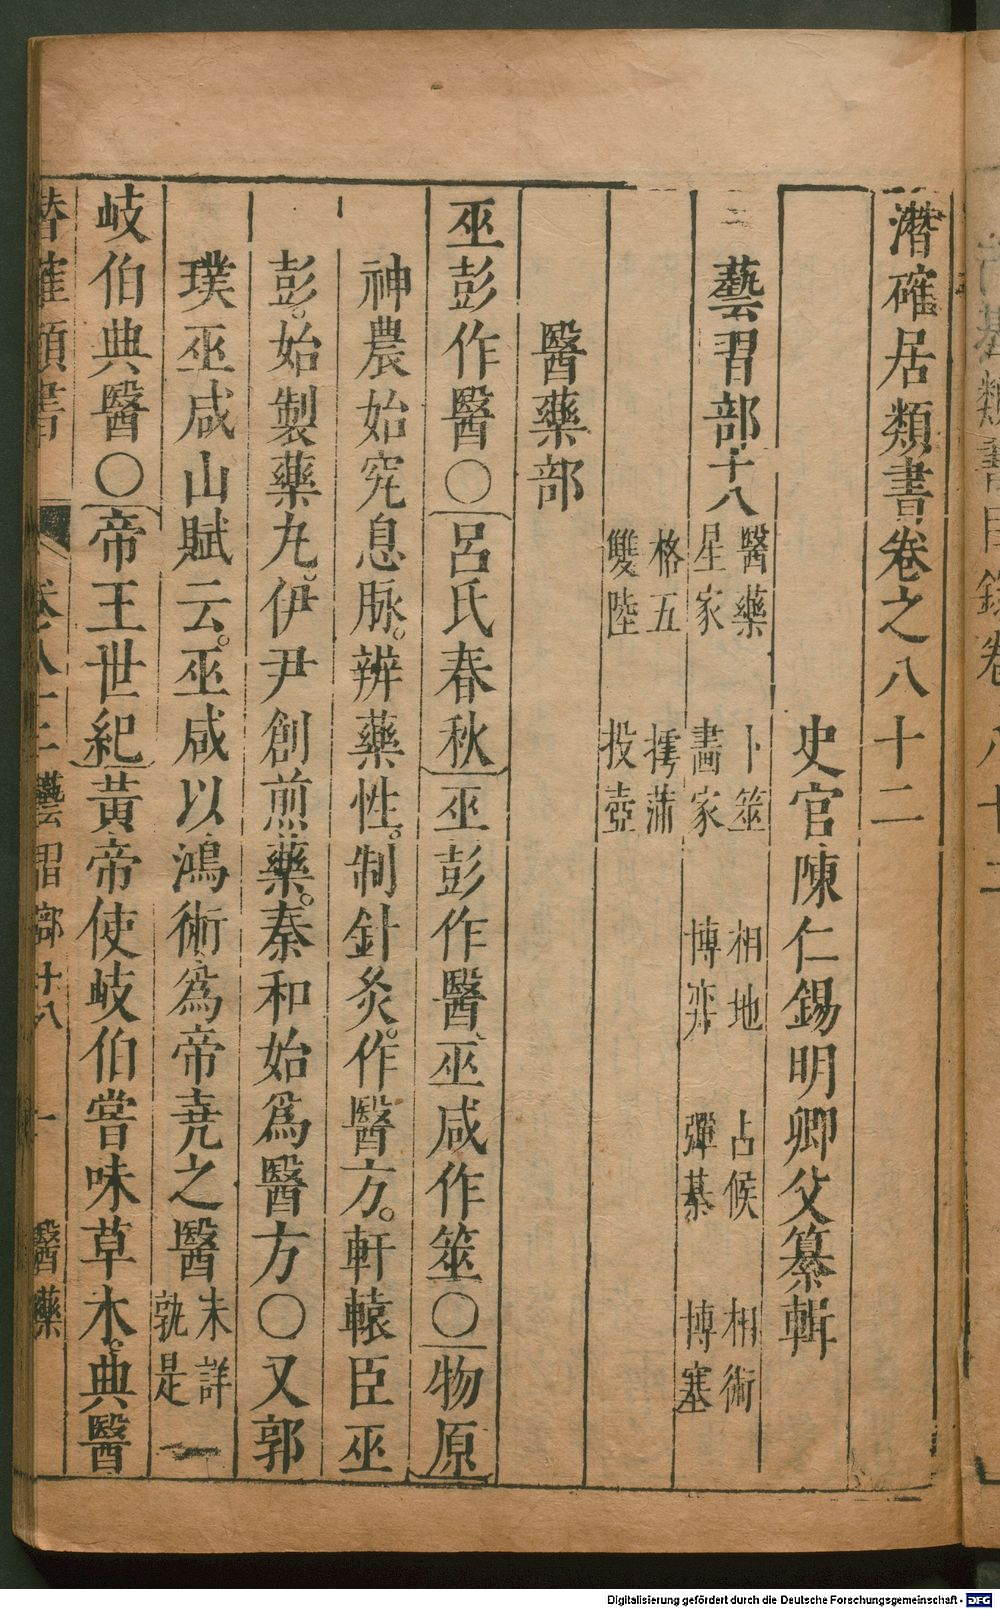 潛確居類書卷之八十二
史官陳仁錫明卿父纂輯
藝習部十八
醫藥 卜筮 相地 占候 相術
星家 畵家 博弈 彈棊 博塞
格五 摴蒲
雙陸 投壺
醫藥部
巫彭作醫○呂氏春秋巫彭作醫巫咸作筮○物原
神農始究息脉。辨藥性。制針灸。作醫方。軒轅臣巫
彭。始製藥丸。伊尹創煎藥。秦和始爲醫方○又郭
璞巫咸山賦云。巫咸以鴻術爲帝堯之醫未詳孰是
岐伯典醫○帝王世紀黃帝使岐伯嘗味草木。典醫
卷八十二 藝習部十八 一 醫藥
Digitalisierung gefördert durch die Deutsche Forschungsgemeinschaft - DFG